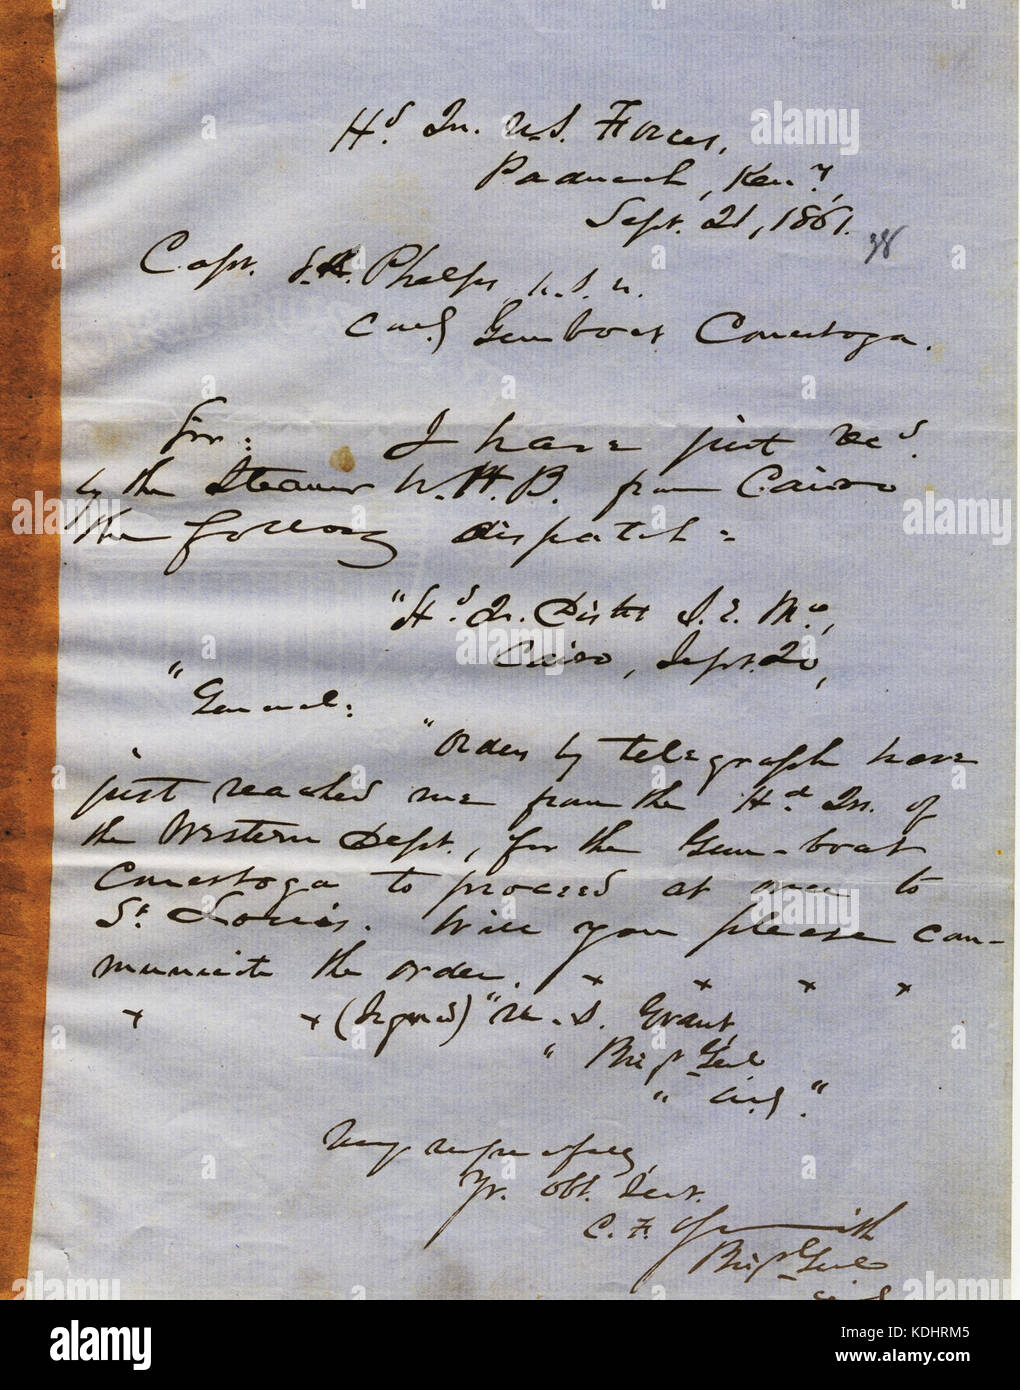 Hd Qrs. U.S. Forces,
Paducah, Ken'y,
Sept. 21, 1861.
38
Capt. S.L. Phelps, U.S.N.
Comdg Gunboat Conestoga.
Sir: I have just recd.
by the Steamer W.H.B. from Cairo
the following dispatch:
"Hd. Qrs. Distt S.E. Mo,
Cairo, Sept. 20,
"General:
"Orders by telegraph have
just reached me from the Hd Qrs. of
the Western Dept., for the Gun-boat
Conestoga to proceed at once to
St Louis. Will you please com-
municate the order. x x x x
x x (Signed) "U.S. Grant,
" Brig Genl
" Comdg."
Very respectfully,
Yr. obt. Servt.
C.F. Smith
Brig Genl
Comdg
alamy
a
Image ID: KDHRM5
www.alamy.com